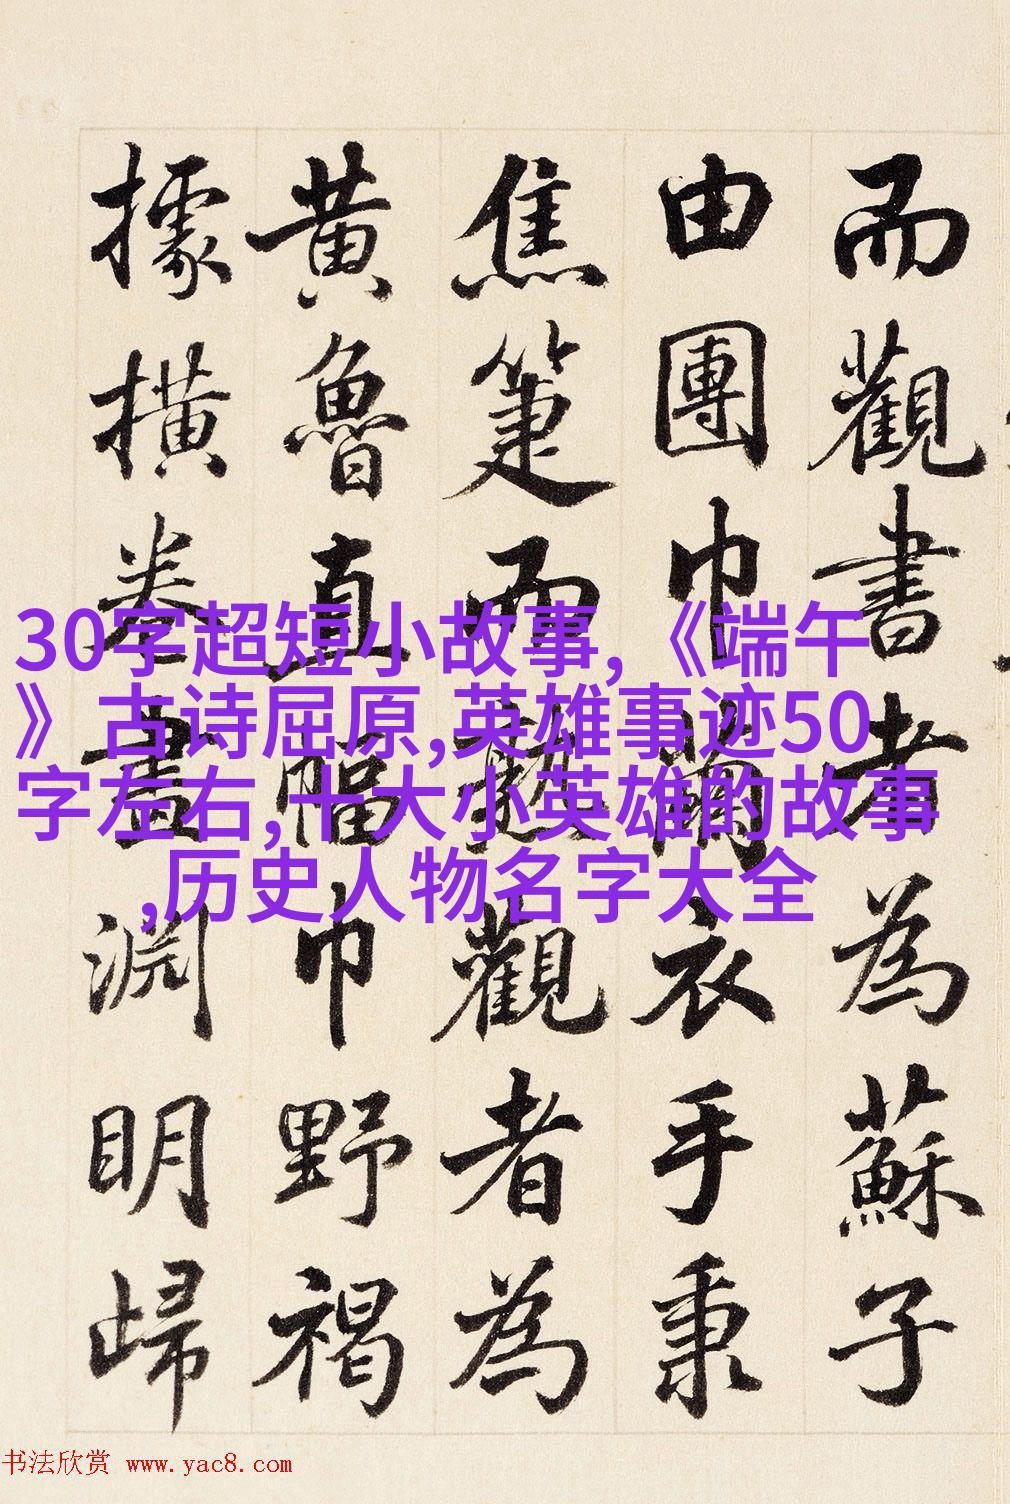 而觀書者為蘇子
由團巾繭衣手秉
焦箑而熟觀者為
黃魯直幅巾野褐
據橫卷畫淵明歸
30字超短小故事,《端午
》古诗屈原,英雄事迹50
字左右,十大小英雄的故事
,历史人物名字大全
书法欣赏 www.yac8.com